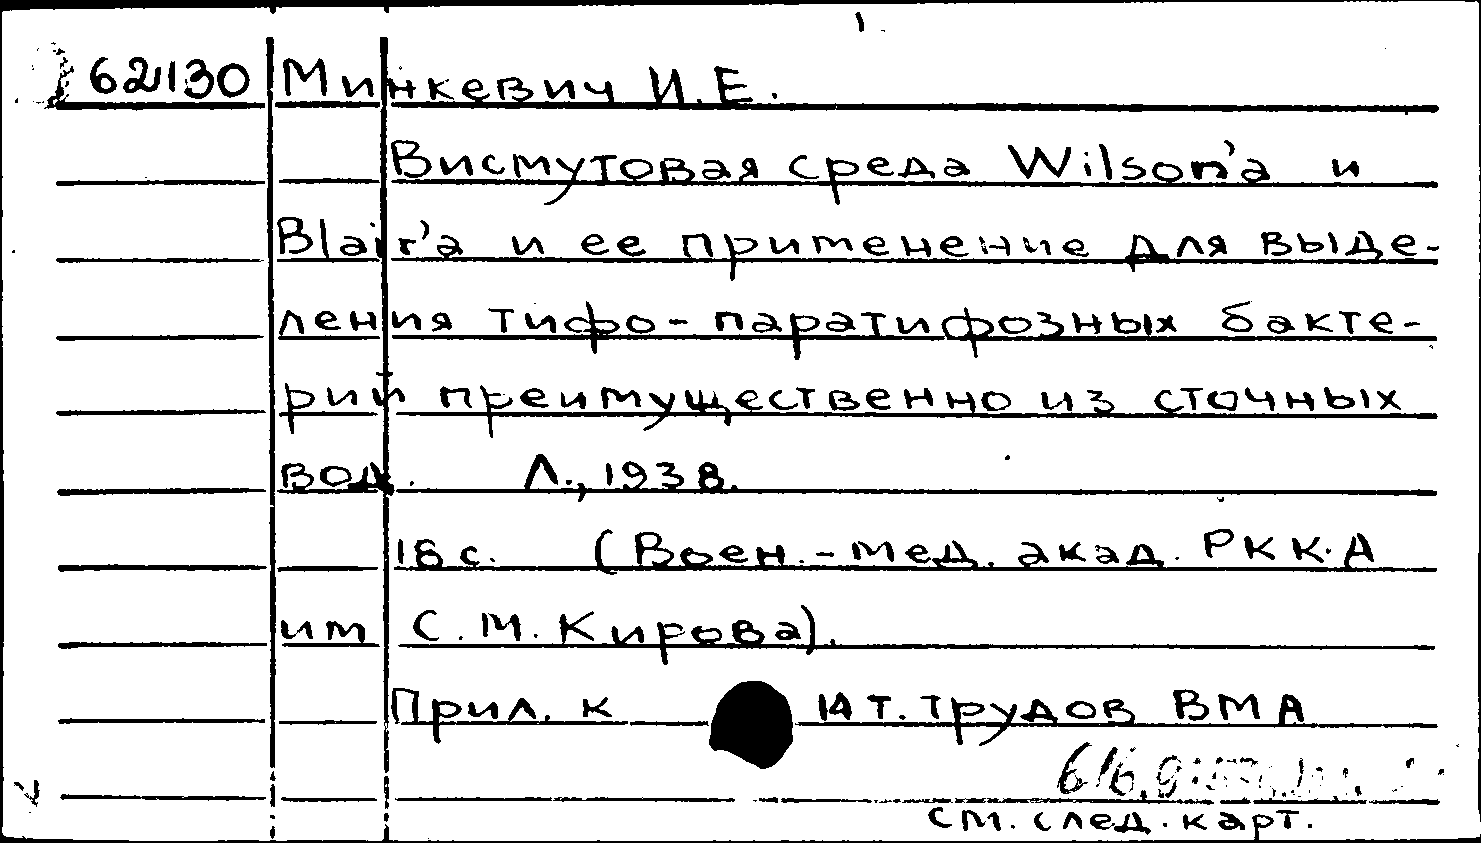 62130 Минкевич И.Е.
Висмутовая среда Wilson'a и
Blair'a и ее применение для выде-
ления тифо-паратифозных бакте-
рий преимущественно из сточных
вод. Л., 1938.
18 с. (Воен.-мед. акад. РККА
им С.М. Кирова).
Прил. к 14 т. трудов ВМА
616.9:
см. след. карт.